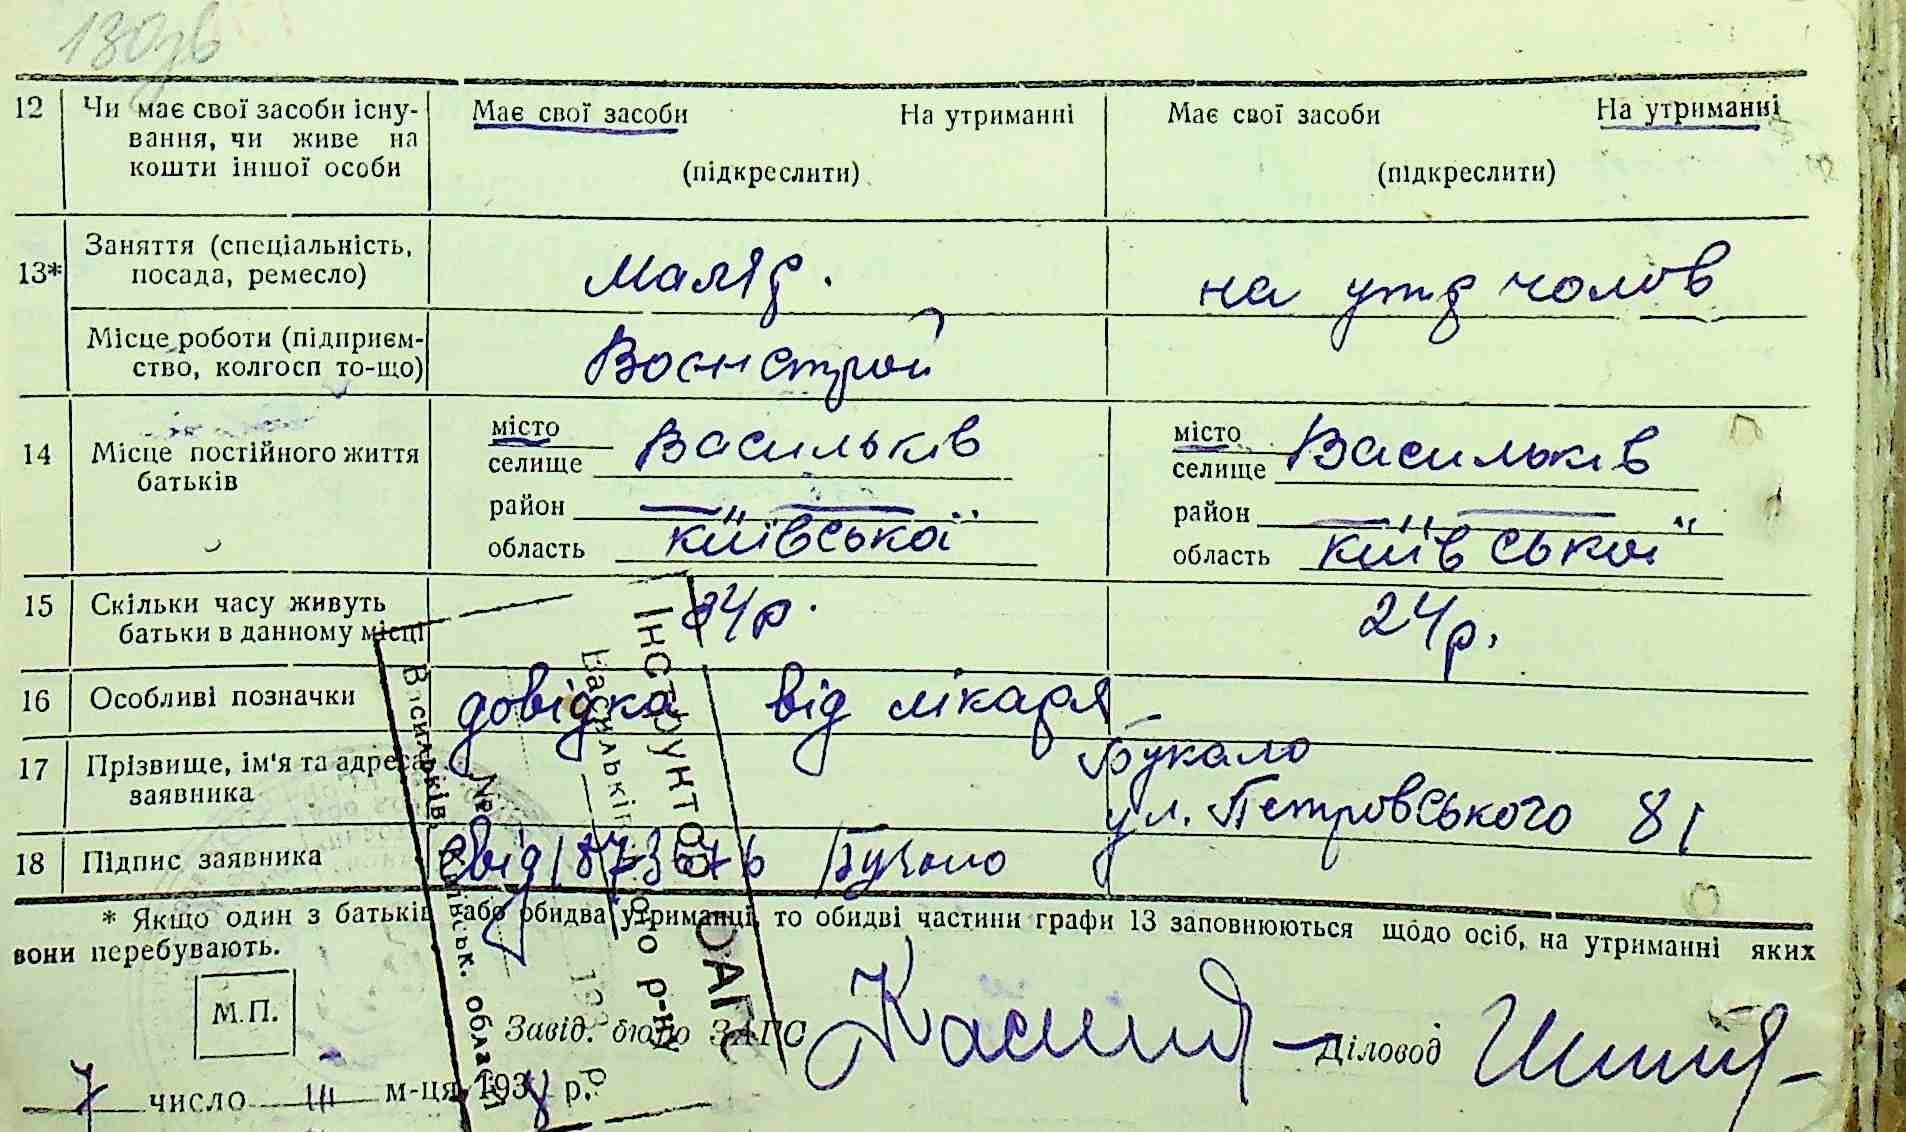 12 Чи має свої засоби існу- Має свої засоби На утриманні Має свої засоби На утриманні
вання, чи живе на
кошти іншої особи (підкреслити) (підкреслити)
13* Заняття (спеціальність,
посада, ремесло) Маляр. на утр чолов
Місце роботи (підприєм-
ство, колгосп то-що) Военстрой
14 Місце постійного життя місто Васильків місто Васильків
батьків селище селище
район район
область київської область київської
15 Скільки часу живуть 24р. 24р.
батьки в данному місці
16 Особливі позначки довідка від лікаря
17 Прізвище, ім'я та адреса Букало
заявника ул. Петровського 81
18 Підпис заявника
* Якщо один з батьків або обидва утриманці, то обидві частини графи 13 заповнюються щодо осіб, на утриманні яких
вони перебувають.
М.П.
Завід. бюро ЗАГС Діловод
7 число III м-ця, 193 р.
Інструктор
ОАГС
Васильківського р-ну
№